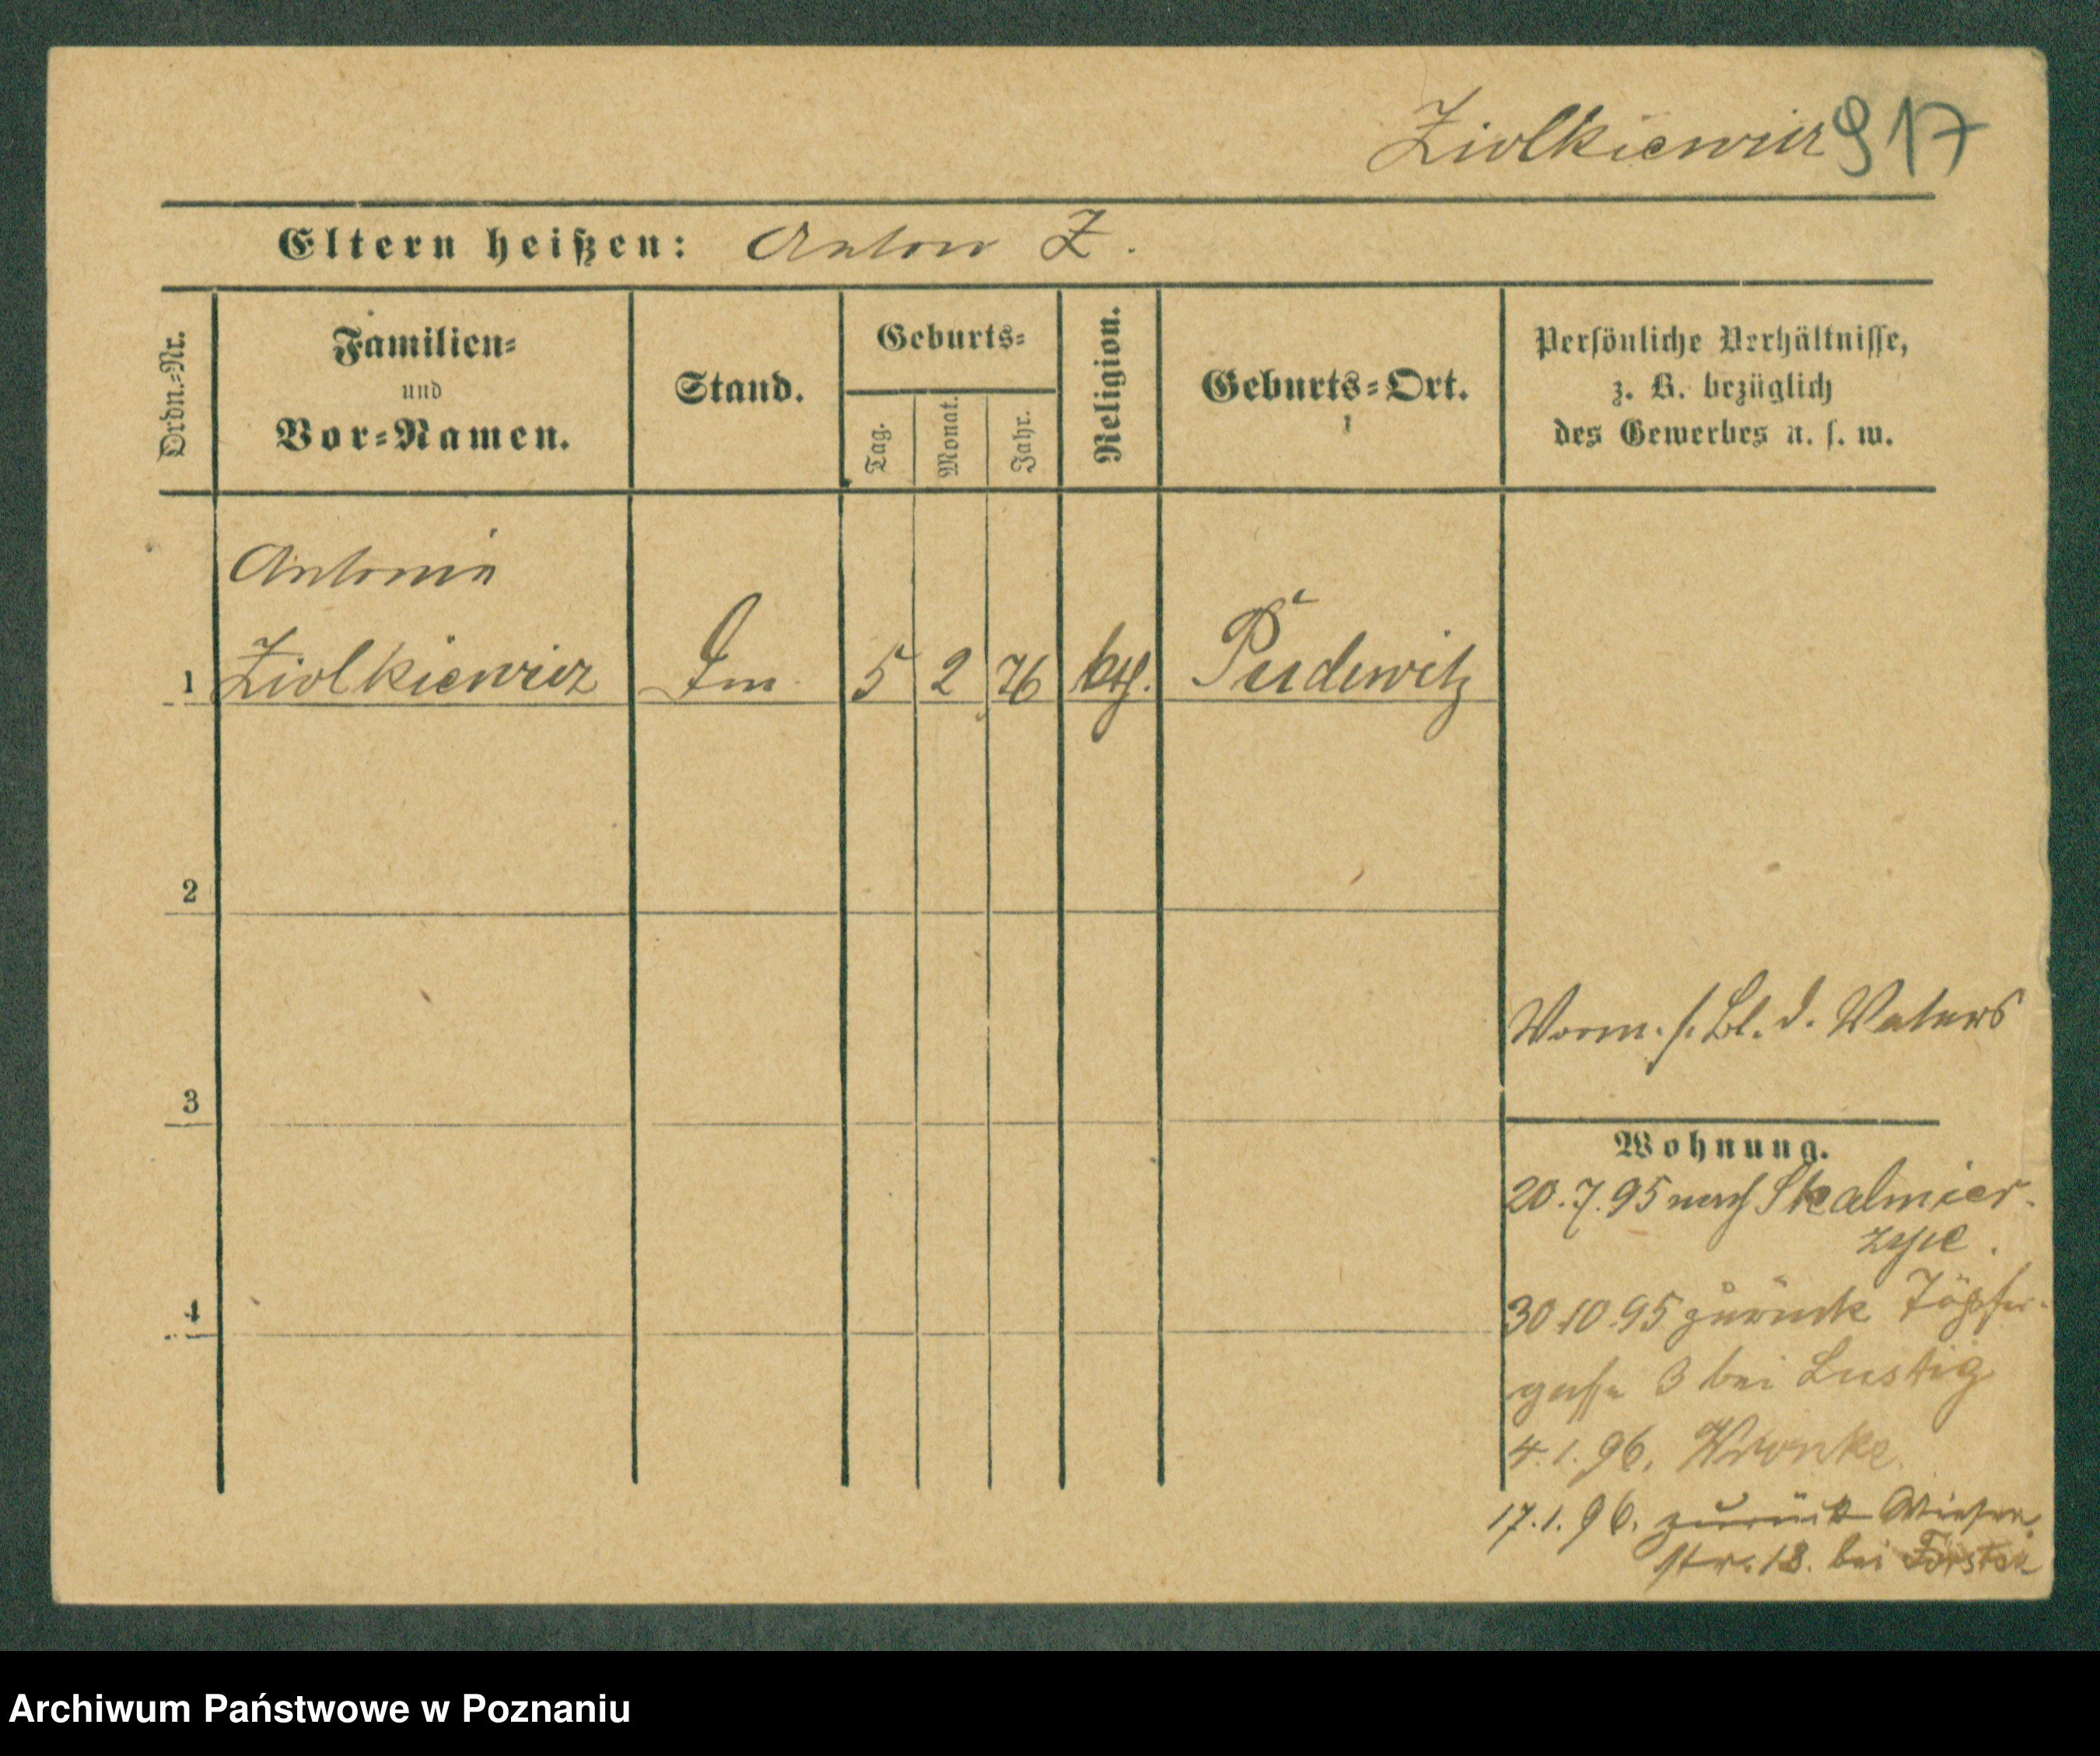 Ziolkiewicz 917
Eltern heißen: Anton Z.
Ordn.=Nr.
Familien=
und
Vor=Namen.
Stand.
Geburts=
Tag.
Monat.
Jahr.
Religion.
Geburts=Ort.
Persönliche Verhältnisse,
z. B. bezüglich
des Gewerbes u. s. w.
Antonie
1 Ziolkiewicz 5 2 76 kth. Pudewitz
2
3
4
Vorm. s. Bl. d. Vaters
Wohnung.
20.7.95 nach Skalmier-
zyce.
30.10.95 zurück Töpfer-
gasse 3 bei Lustig
4.1.96. Wronke.
17.1.96. zurück Wiesen-
str. 18. bei
Archiwum Państwowe w Poznaniu